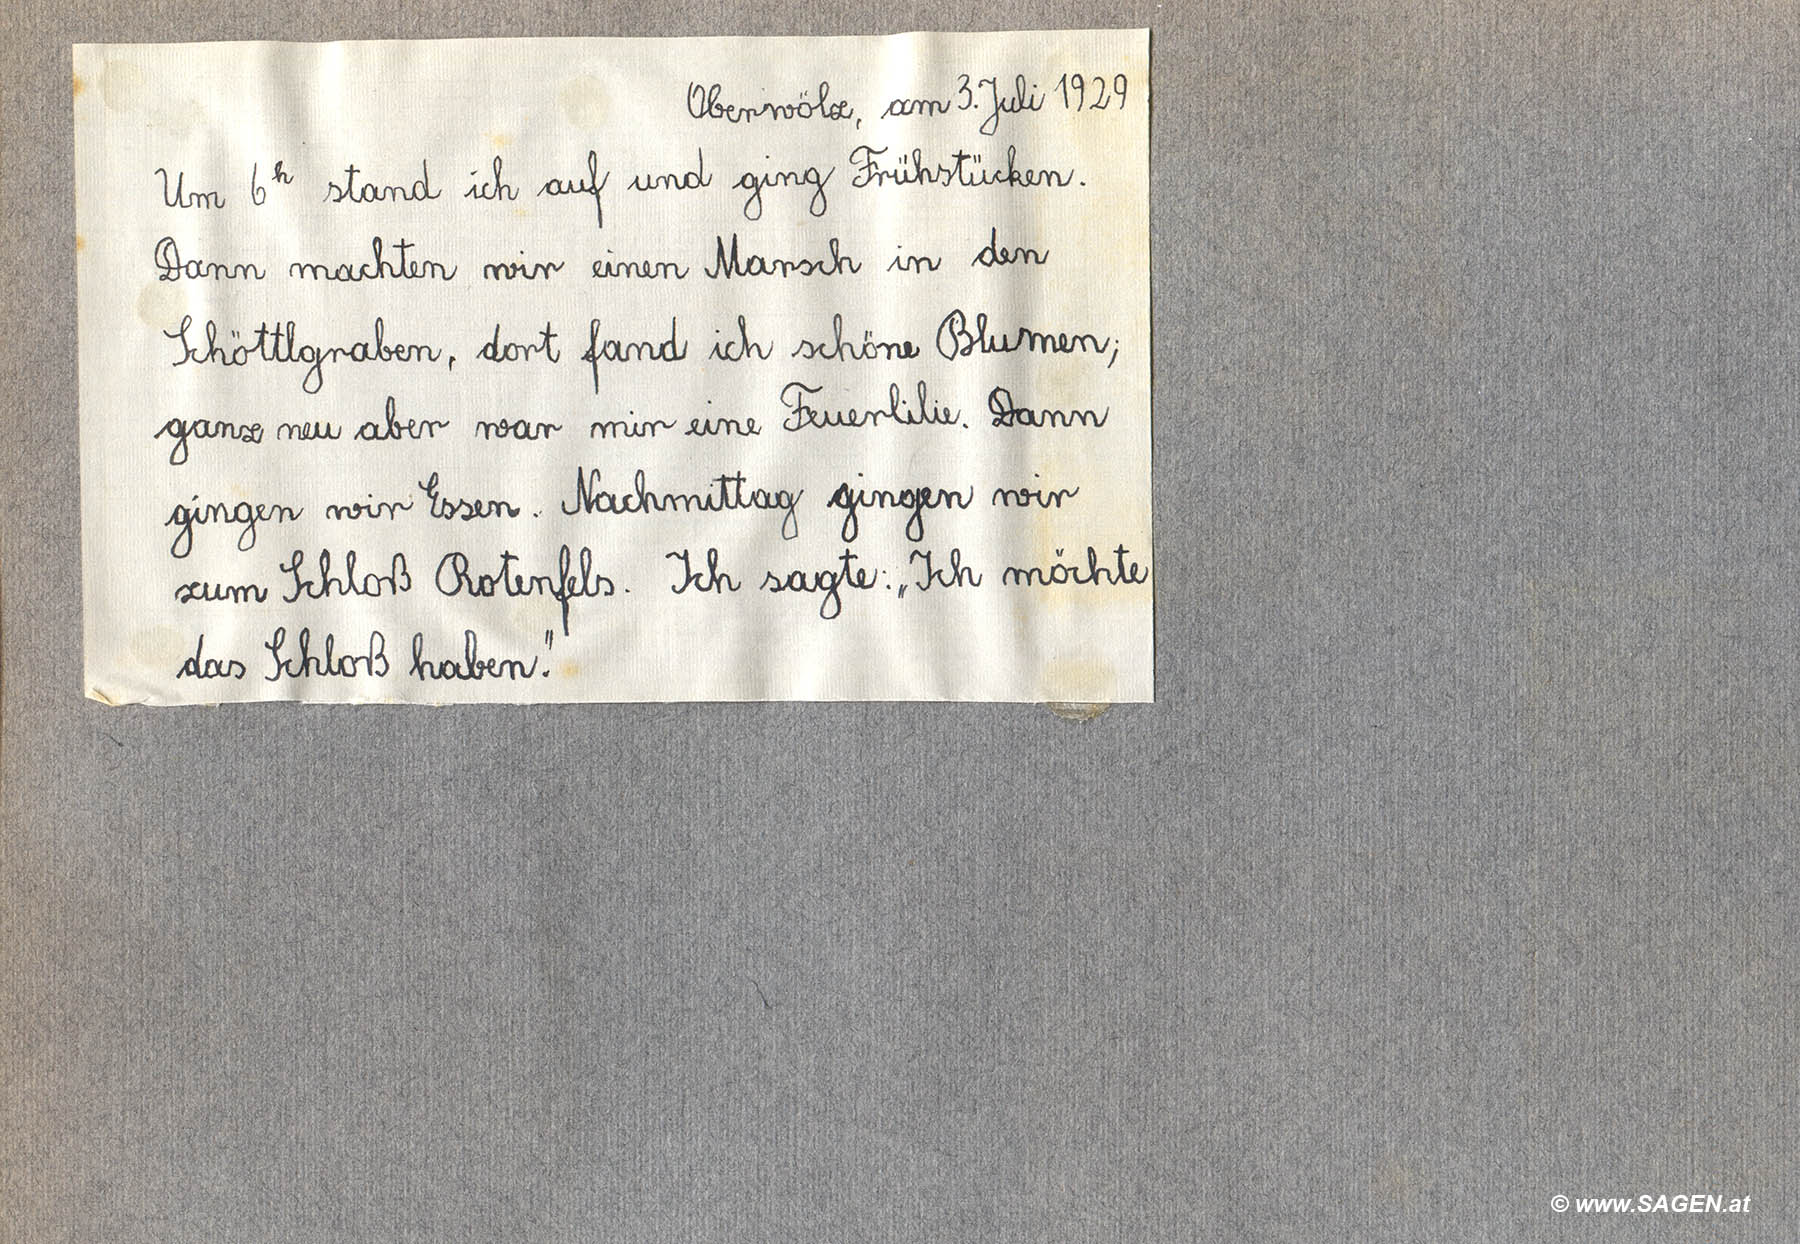 Oberwölz, am 3. Juli 1929
Um 6ʰ stand ich auf und ging Frühstücken.
Dann machten wir einen Marsch in den
Schöttlgraben, dort fand ich schöne Blumen;
ganz neu aber war mir eine Feuerlilie. Dann
gingen wir Essen. Nachmittag gingen wir
zum Schloß Rotenfels. Ich sagte: „Ich möchte
das Schloß haben."
© www.SAGEN.at